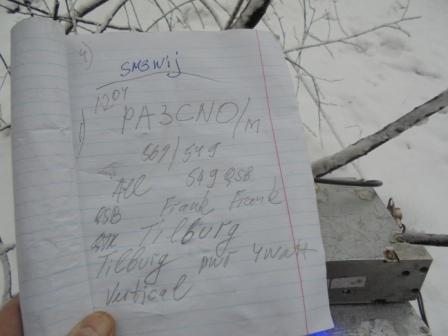 4)
SM3Wij
1204
1) PA3CNO/m
569/549
All 549 QSB
QSB Frank Frank
QTH Tilburg
Tilburg pwr 4Watt
Vertical